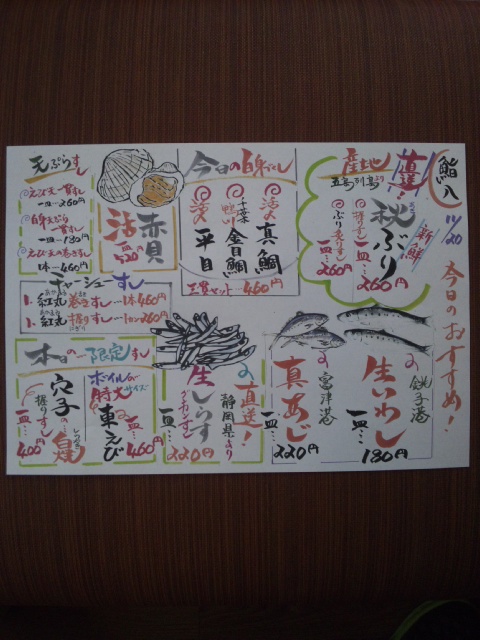 鮨八
11/20
今日のおすすめ!
産地直送!
五島列島より
新鮮
秋ぶり
一皿…
260円
ぶり
一皿…
260円
今日の白身すし
活〆
真鯛
千葉
鴨川
金目鯛
活〆
平目
三貫セット…460円
赤貝
活
天ぷらすし
えび天一貫すし
一皿…260円
白身天ぷら
一貫すし
一皿…180円
えび天の巻きすし
1本…460円
チャーシューすし
1.紅丸巻すし…1本460円
1.紅丸握りすし…1カン260円
銚子港
生いわし
一皿…
180円
富津港
真あじ
一皿…
220円
直送!
静岡県より
生しらす
グンカンすし
一皿…
220円
本日の…限定すし
ボイルしたて
特大サイズ
車えび
一皿…
460円
穴子の
握りすし
一皿…
400円